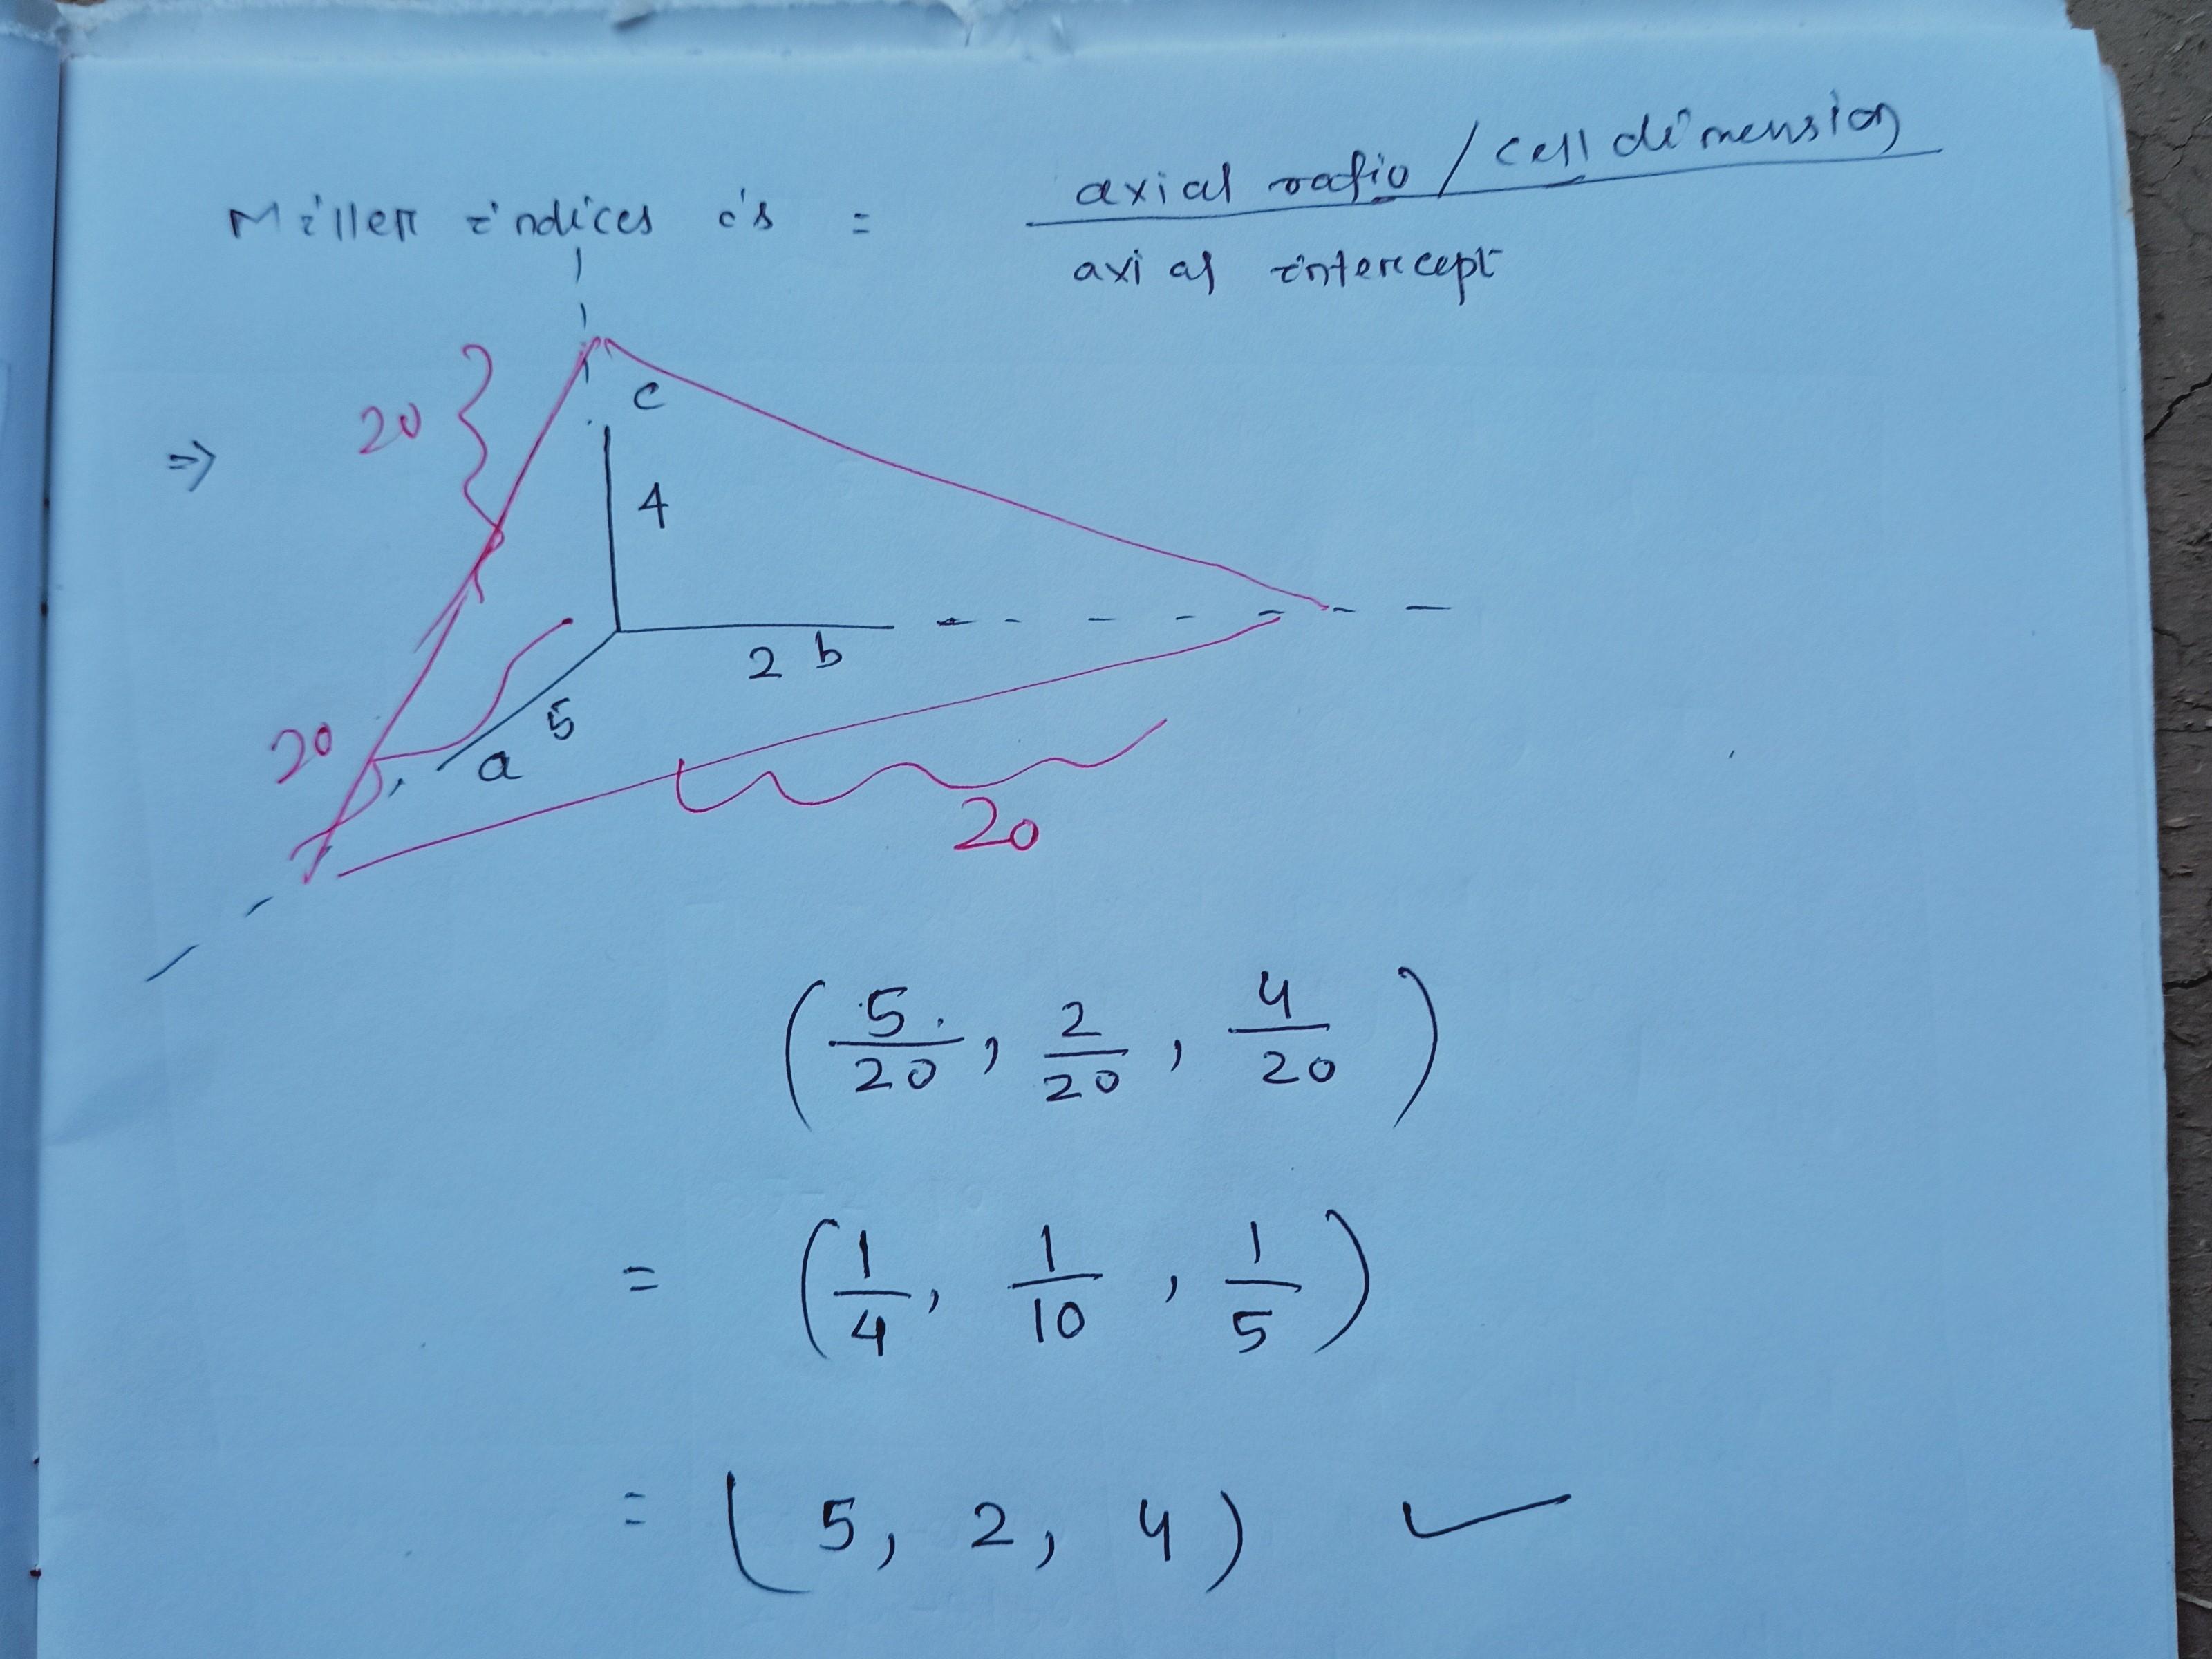 Miller indices is = axial ratio / cell dimension
axial intercept
⇒ 20 c
4
2 b
5
20 a
20
( 5/20 , 2/20 , 4/20 )
= ( 1/4 , 1/10 , 1/5 )
= ( 5, 2, 4 ) ✓